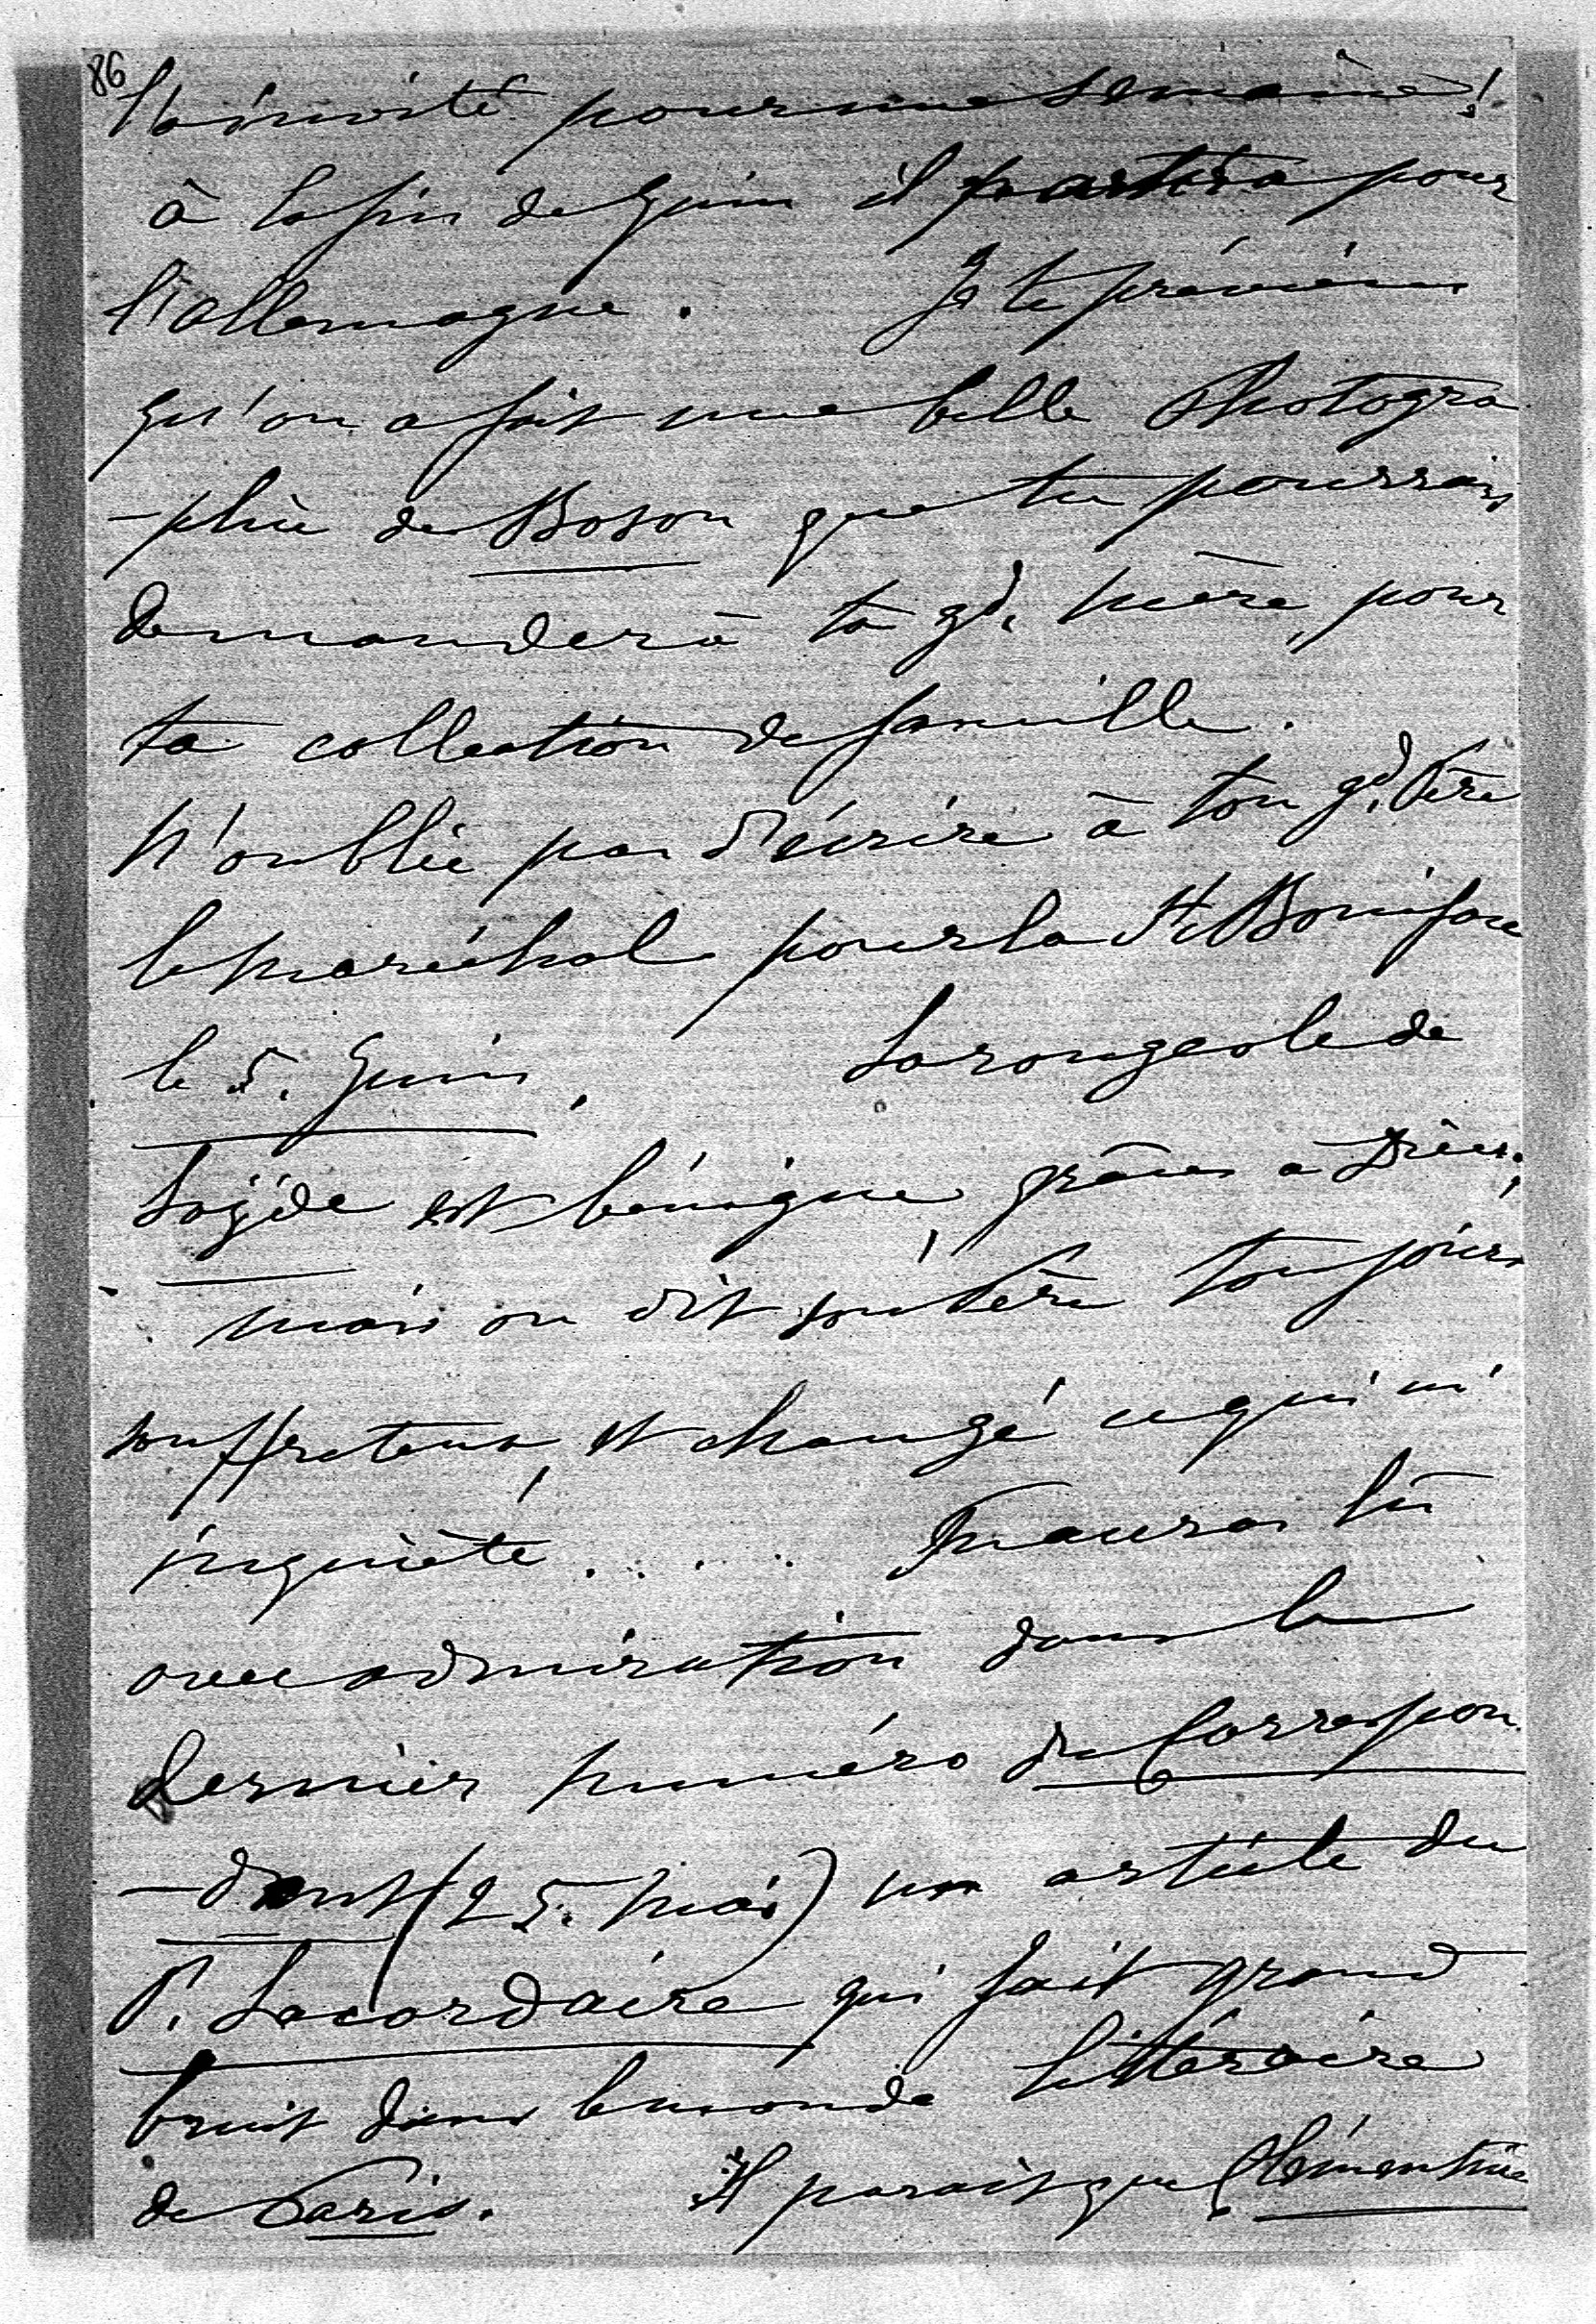 86
l'a invité pour une semaine!
à la fin de Juin il partira pour
l'allemagne. Je te préviens
qu'on a fait une belle Photogra
-phie de Boson que tu pourrais
demander à ta gd. mère, pour
ta collection de famille.
N'oublie pas d'écrire à ton gd. Père
le Maréchal pour la St Boniface
le 5. Juin. La rougeole de
est bénigne, grâces a Dieu;
mais on dit son Père toujours
souffreteux, et changé ce qui m'
inquiète..... Tu auras lu
avec admiration dans le
dernier numéro du Correspon
-dant (25. Mai) un article du
P. Lacordaire qui fait grand
bruit dans le monde littéraire
de Paris. Il parait que Clémentine